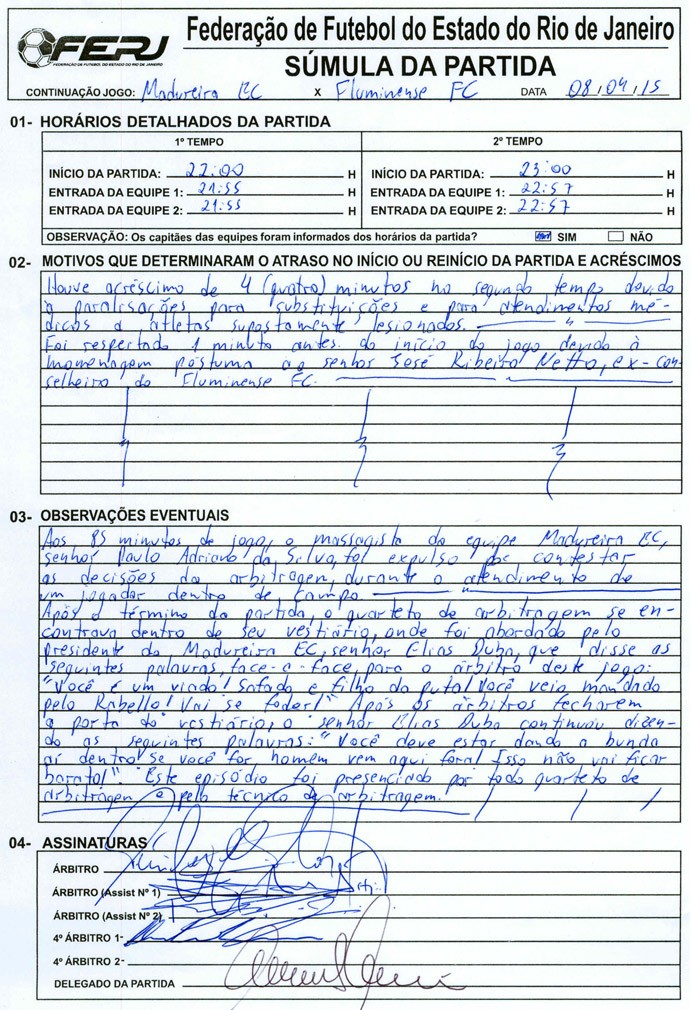 FERJ
FEDERAÇÃO DE FUTEBOL DO ESTADO DO RIO DE JANEIRO
Federação de Futebol do Estado do Rio de Janeiro
SÚMULA DA PARTIDA
CONTINUAÇÃO JOGO: Madureira EC X Fluminense FC DATA 08/04/15
01- HORÁRIOS DETALHADOS DA PARTIDA
1º TEMPO 2º TEMPO
INÍCIO DA PARTIDA: 22:00 H INÍCIO DA PARTIDA: 23:00 H
ENTRADA DA EQUIPE 1: 21:55 H ENTRADA DA EQUIPE 1: 22:57 H
ENTRADA DA EQUIPE 2: 21:55 H ENTRADA DA EQUIPE 2: 22:57 H
OBSERVAÇÃO: Os capitães das equipes foram informados dos horários da partida? SIM NÃO
02- MOTIVOS QUE DETERMINARAM O ATRASO NO INÍCIO OU REINÍCIO DA PARTIDA E ACRÉSCIMOS
Houve acréscimo de 4 (quatro) minutos no segundo tempo devido
a paralisações para substituições e para atendimentos mé-
dicos a atletas supostamente lesionados.
Foi respeitado 1 minuto antes do início do jogo devido à
homenagem póstuma ao senhor José Ribeiro Netto, ex-con-
selheiro do Fluminense FC.
03- OBSERVAÇÕES EVENTUAIS
Aos 85 minutos de jogo, o massagista da equipe Madureira EC,
senhor Paulo Adriano da Silva, foi expulso por contestar
as decisões da arbitragem, durante o atendimento de
um jogador dentro de campo.
Após o término da partida, o quarteto de arbitragem se en-
contrava dentro de seu vestiário, onde foi abordado pelo
presidente do Madureira EC, senhor Elias Duba, que disse as
seguintes palavras, face-a-face, para o árbitro deste jogo:
"Você é um viado! Safado e filho da puta! Você veio mandado
pelo Rabello! Vai se foder!" Após os árbitros fecharem
a porta do vestiário, o senhor Elias Duba continuou dizen-
do as seguintes palavras: "Você deve estar dando a bunda
aí dentro! Se você for homem vem aqui fora! Isso não vai ficar
barato!". Este episódio foi presenciado por todo quarteto de
arbitragem e pelo técnico de arbitragem.
04- ASSINATURAS
ÁRBITRO
ÁRBITRO (Assist Nº 1)
ÁRBITRO (Assist Nº 2)
4º ÁRBITRO 1-
4º ÁRBITRO 2-
DELEGADO DA PARTIDA